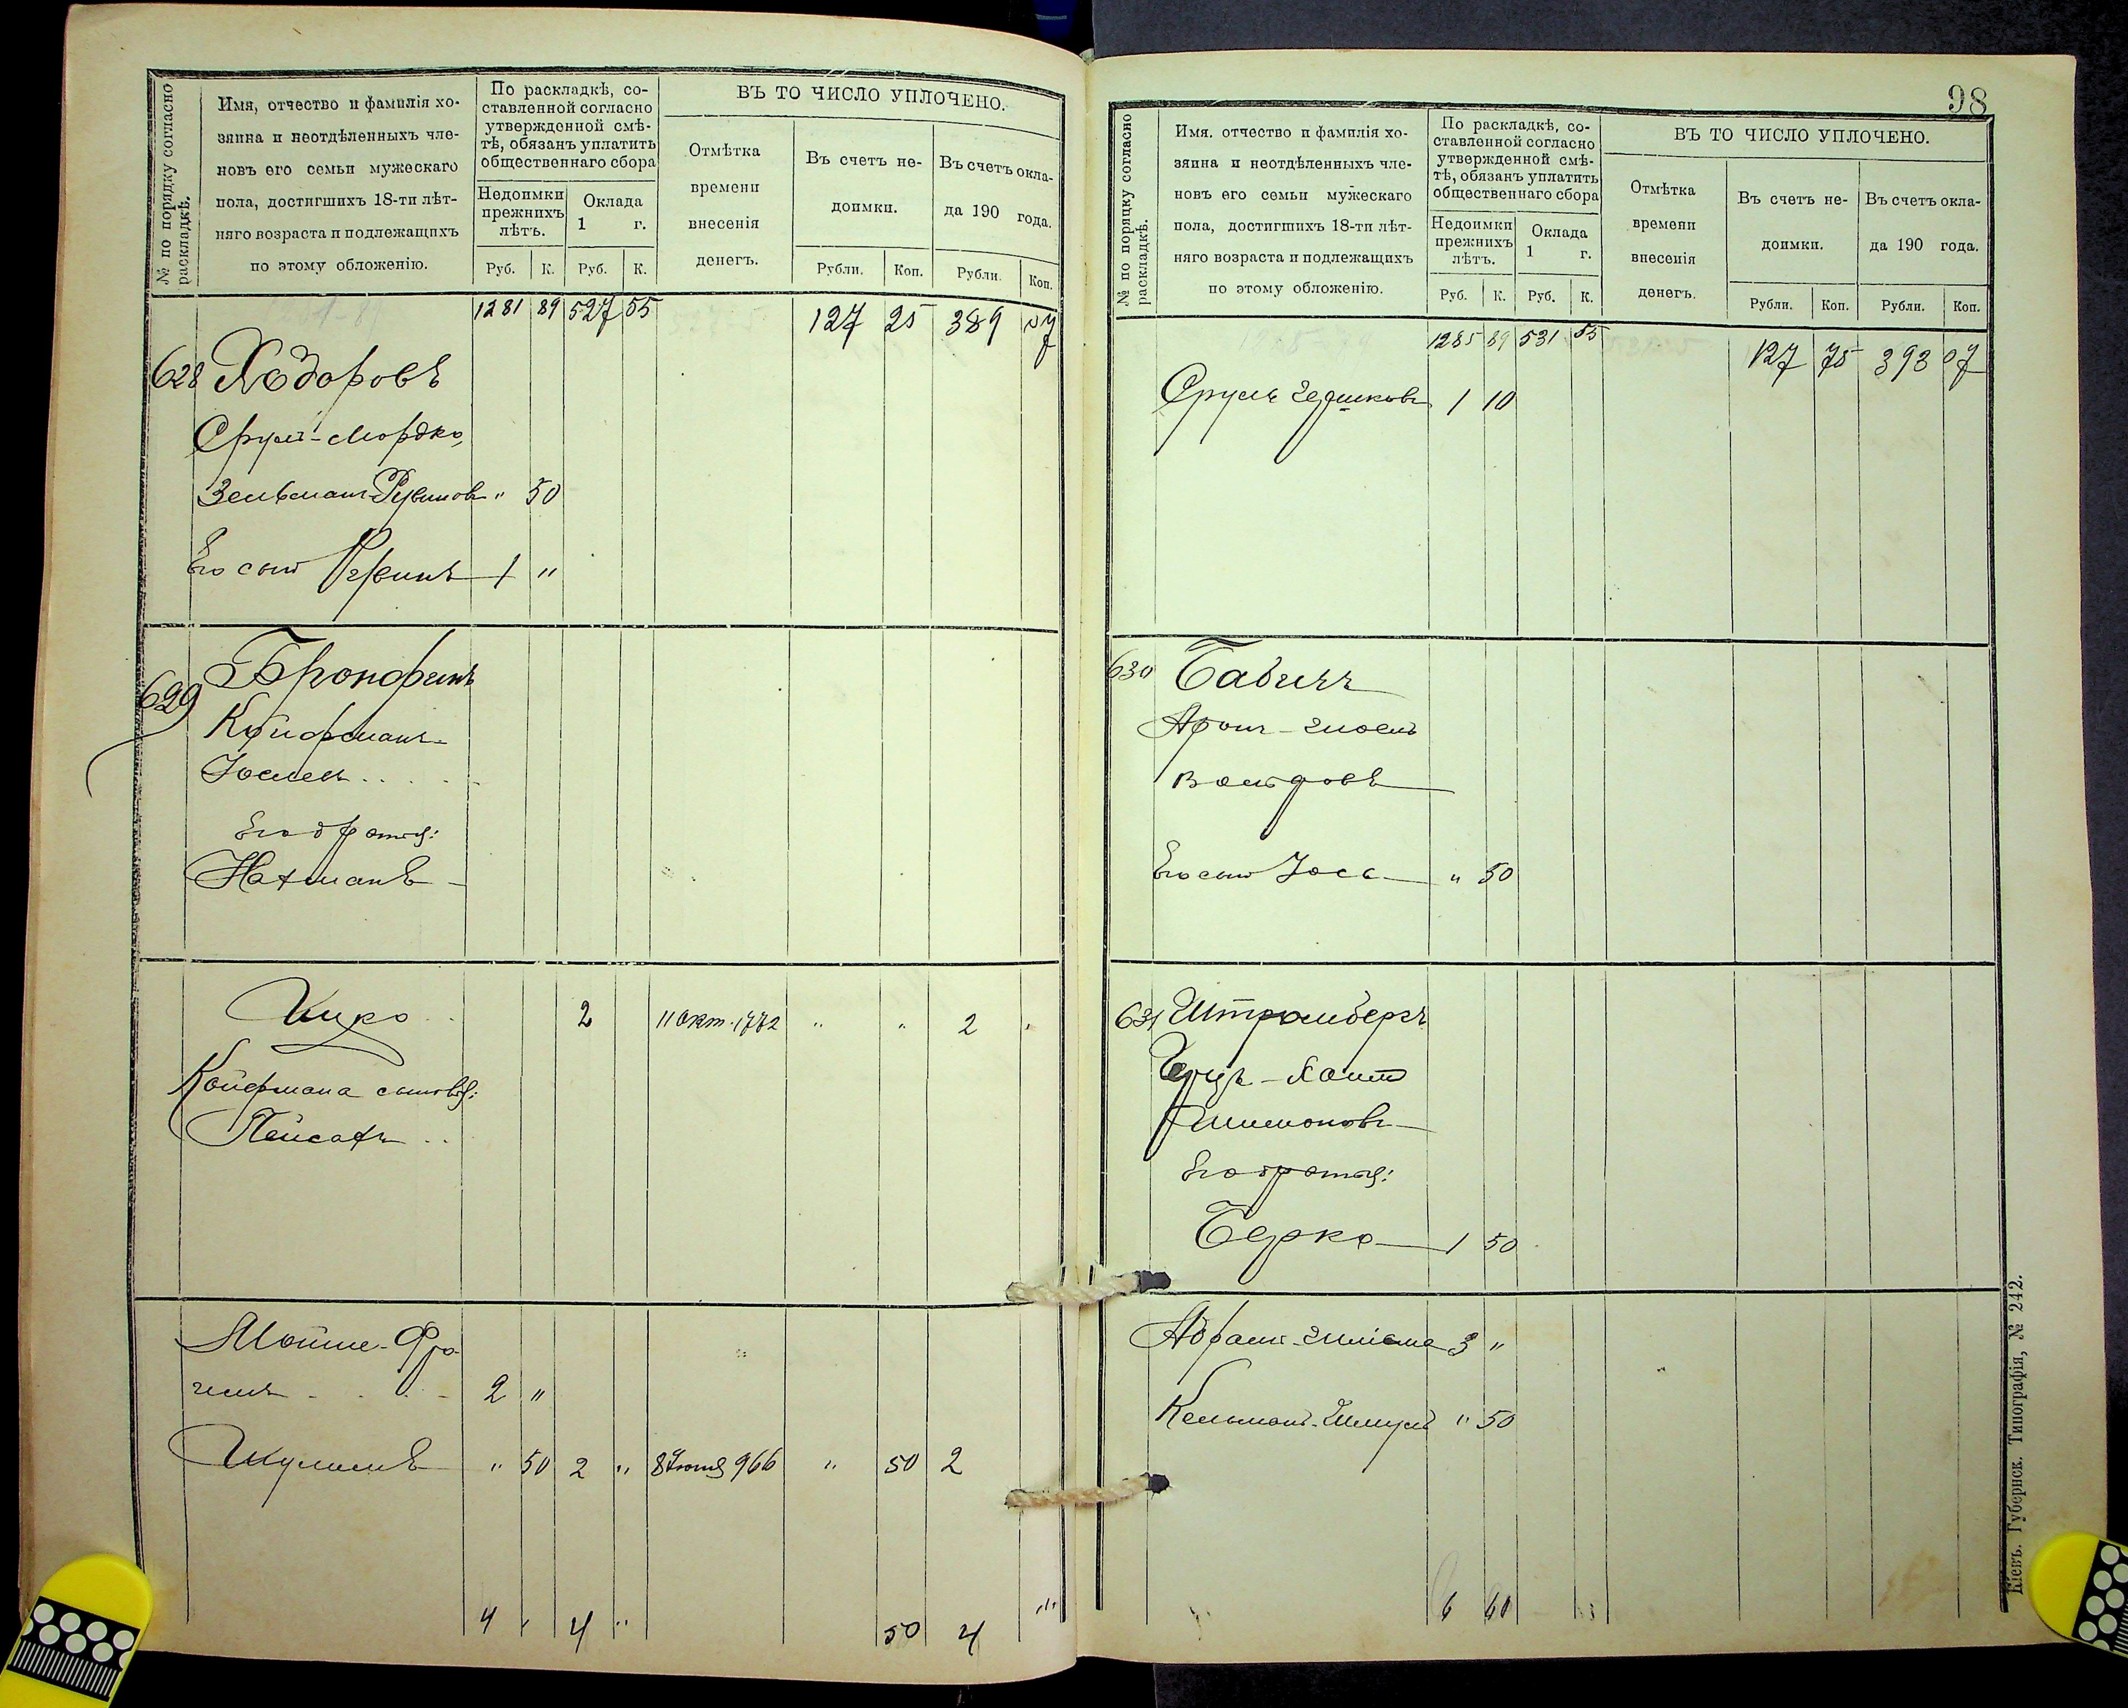 № по порядку согласно раскладкѣ.
Имя, отчество и фамилія хо-
зяина и неотдѣленныхъ чле-
новъ его семьи мужескаго
пола, достигшихъ 18-ти лѣт-
няго возраста и подлежащихъ
по этому обложенію.
По раскладкѣ, со-
ставленной согласно
утвержденной смѣ-
тѣ, обязанъ уплатить
общественнаго сбора
Недоимки
прежнихъ
лѣтъ.
Оклада
1 г.
Руб. К. Руб. К.
ВЪ ТО ЧИСЛО УПЛОЧЕНО.
Отмѣтка
времени
внесенія
денегъ.
Въ счетъ не-
доимки.
Въ счетъ окла-
да 190 года.
Рубли. Коп. Рубли. Коп.
1281 89 527 55 127 25 389 07
628 Ходоровъ
Срул-Мордко,
Зельман Рувинов " 50
Его сын Рувинъ 1 "
629 Бронфинъ
Койфман-
Иоселев
Его братья:
Нахманъ
Шико 2 11 Окт. 1772 " " 2
Койфмана сыновья:
Пейсахъ
Мойше-Фро-
имъ 2 "
Шулимъ " 50 2 " 8 Июня 966 " 50 2
4 " 4 " 50 4 "
98
№ по порядку согласно раскладкѣ.
Имя, отчество и фамилія хо-
зяина и неотдѣленныхъ чле-
новъ его семьи мужескаго
пола, достигшихъ 18-ти лѣт-
няго возраста и подлежащихъ
по этому обложенію.
По раскладкѣ, со-
ставленной согласно
утвержденной смѣ-
тѣ, обязанъ уплатить
общественнаго сбора
Недоимки
прежнихъ
лѣтъ.
Оклада
1 г.
Руб. К. Руб. К.
ВЪ ТО ЧИСЛО УПЛОЧЕНО.
Отмѣтка
времени
внесенія
денегъ.
Въ счетъ не-
доимки.
Въ счетъ окла-
да 190 года.
Рубли. Коп. Рубли. Коп.
1285 89 531 55 127 75 393 07
Срулъ Гершковъ 1 10
630 Бабичъ
Арон-
Его сын Иось " 50
631 Штромбергъ
Герцъ-Хаим
Шимоновъ
Его братья:
Берко 1 50
Абрам- 3 "
Кельман-Шмулъ " 50
6 60
Кіевъ. Губернск. Типографія, № 242.